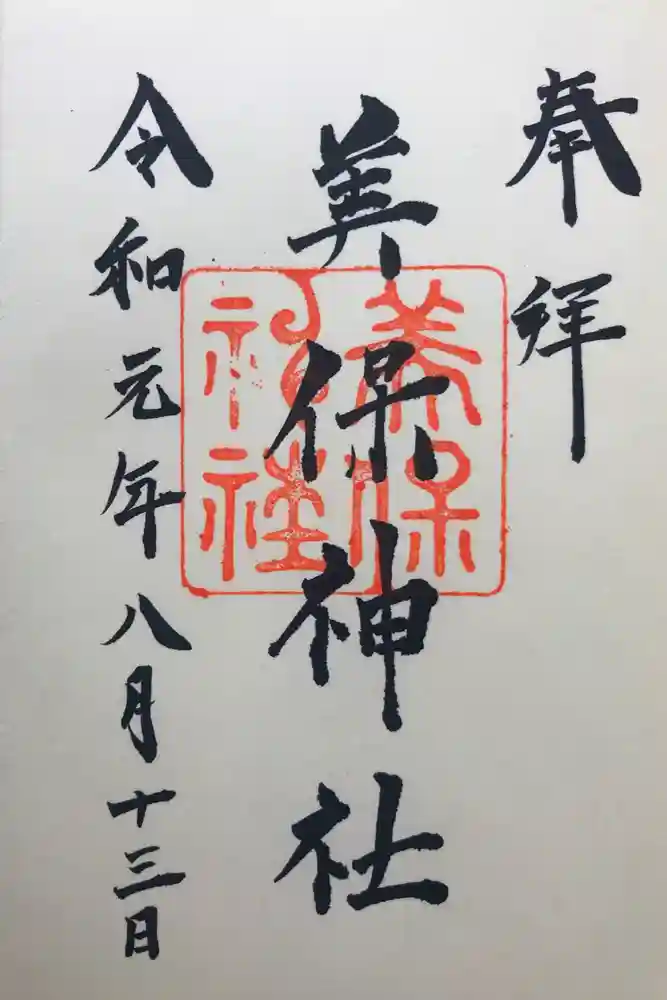 奉拝
美保神社
美保
神社
令和元年八月十三日